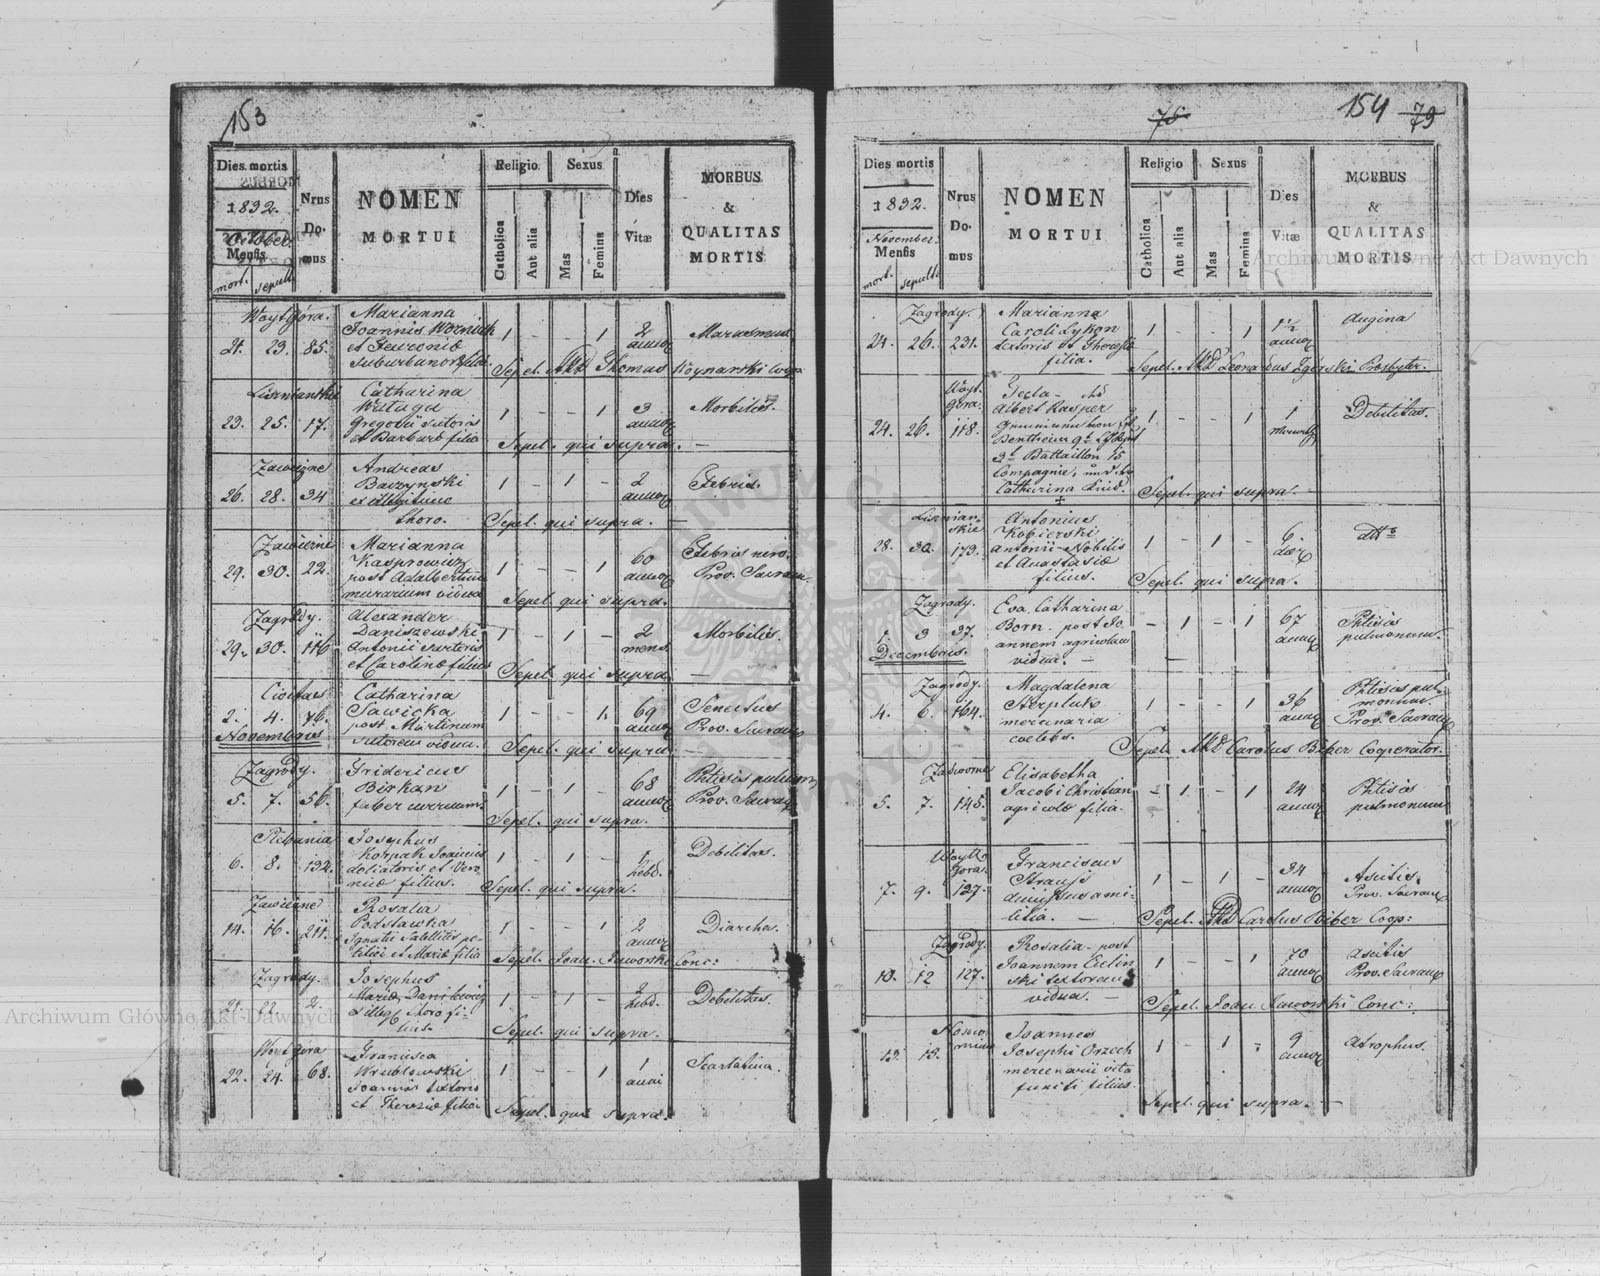 153
Dies mortis
1832.
October
Mensis
mort. sepult.
Nrus
Do-
mus
NOMEN
MORTUI
Religio
Catholica
Aut alia
Sexus
Mas
Femina
Dies
Vitæ
MORBUS
&
QUALITAS
MORTIS
Woyt Góra. Marianna
Joannis
21. 23. 85. 1 - - 1 2 Marasmus
suburbanor filia annor
Sepel. Thomas Woynarski
Catharina
23. 25. 17. 1 - - 1 3 Morbilis.
Gregorii sutoris annor
et Barbaræ filia
Sepel. qui supra. —
Zawiezne Andreas
Baczynski
26. 28. 34 1 - 1 - 2 Febris.
ex illegitimo annor
thoro. Sepel. qui supra. —
Zawiezne Marianna
Kasprowicz
29. 30. 22. 1 - - 1 60 Febris nerv.
post Adalbertum annor Prov. Sacram.
murarium vidua
Sepel. qui supra.
Zagrody. Alexander
Daniszewski
29. 30. 116 1 - 1 - 2 Morbilis.
Antonii sartoris mens.
et Carolinæ filius
Sepel. qui supra —
Catharina
Sawicka
2. 4. 76. 1 - - 1. 69 Senectus
post Martinum annor Prov. Sacram
Novembris
sutorem vidua. Sepel. qui supra —
Zagrody. Fridericus
Birkan
5. 7. 56. 1 - 1 - 68 Phtisis pulmon
faber murarum. annor Prov. Sacram
Sepel. qui supra.
Plebania Josephus
Korpak Joannis
6. 8. 132. 1 - 1 - 1 Debilitas.
doliatoris et Vero
nicæ filius. hebd.
Sepel. qui supra.
Zawiezne Rosalia
Podstawka
14. 16. 211. 1 - - 1 2 Diarrhea.
Ignatii Satellitis po-
litici et Mariæ filia annor
Sepel. Joan. Jaworski Conc:
Zagrody. Josephus
Mariæ Danilewicz
21. 22. 2. 1 - 1 - 2 Debilitas.
illeg. thoro fi-
lius. hebd.
Sepel. qui supra.
Woyt Góra Francisca
Wrublowski
22. 24. 68. 1 - - 1 1 Scarlatina.
Joannis textoris anni
et Theresiæ filia
Sepel. qui supra.
76
154 79
Dies mortis
1832.
November.
Mensis
mort. sepult.
Nrus
Do-
mus
NOMEN
MORTUI
Religio
Catholica
Aut alia
Sexus
Mas
Femina
Dies
Vitæ
MORBUS
&
QUALITAS
MORTIS
Zagrody. Marianna
Caroli Lykon
24. 26. 231. 1 - - 1 1½ Angina
textoris et Theresiæ annor
filia.
Sepel. Leonardus Zgórski Presbyter.
Woyt.
góra. Tecla
Albert Kasper
24. 26. 118. 1 - - 1 1 Debilitas.
Bentheim
3 Battaillon 15
Compagnie, und der
Catharina Kind. Sepel. qui supra. —
Lisznian-
skie Antonius
Kobierski
28. 30. 173. 1 - 1 - 6 dtto
Antonii Nobilis dier
et Anastasiæ
filius. Sepel. qui supra.
Zagrody. Eva Catharina
1. 3 37. Born. post Jo - 1 - 1 67 Phtisis
Decembris. annem agricolam annor pulmonum.
vidua. —
Zagrody. Magdalena
4. 6. 164. 1 - - 1 36 Phtisis pul-
monum.
mercenaria annor Prov. Sacram
coelebs.
Sepel. Carolus Biber Cooperator.
Zawiezne Elisabetha
5. 7. 145. Jacobi Christian - 1 - 1 24 Phtisis
agricolæ filia. annor pulmonum
Woyt
góra. Franciscus
Strauss
7. 9. 127. 1 - 1 - 34 Ascitis.
dimissus a mi- annor Prov. Sacram
litia. — Sepel. Carolus Biber Coop:
Zagrody. Rosalia post
10. 12 127. Joannem 1 - - 1 70 Ascitis
ski textorem annor Prov. Sacram
vidua. —
Sepel. Joan. Jaworski Conc:
Joannes
13. 15. Josephi Orzech 1 - 1 - 9 Atrophus.
mercenarii vita annor
functi filius.
Sepel. qui supra. —
Archiwum Główne Akt Dawnych
Archiwum Główne Akt Dawnych